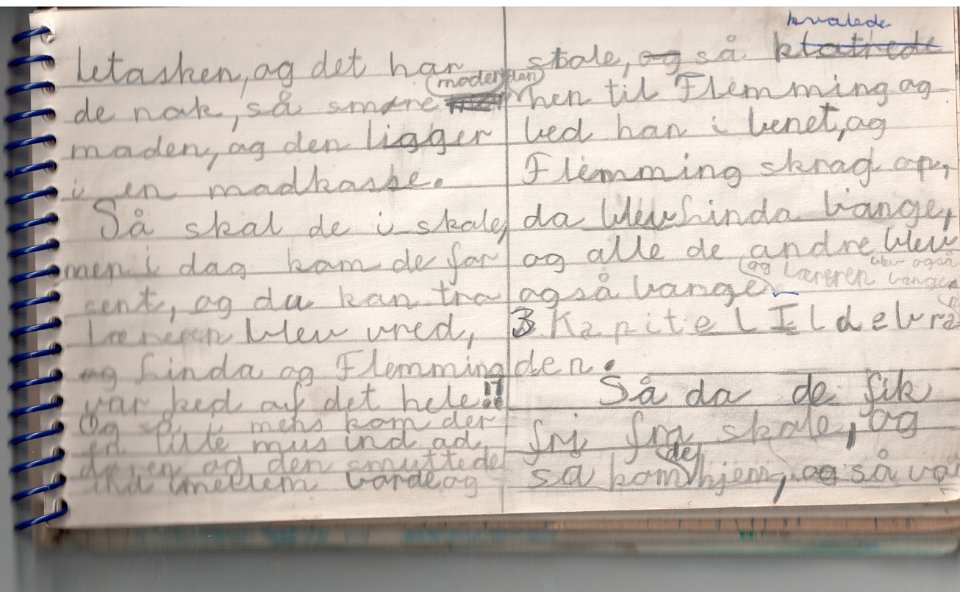 letasken, og det har
de nok, så smøre moder den
maden, og den ligger
i en madkasse.
Så skal de i skole,
men i dag kom de for
sent, og du kan tro
læreren blev vred,
og Linda og Flemming
var ked af det hele!!
Og så mens kom der
en lille mus ind ad
døren og den smuttede
ind imellem borde og
stole, og så kravlede
hen til Flemming og
bed han i benet, og
Flemming skrag op,
da blev Linda bange,
og alle de andre blev
også bange og læreren blev også bange
3 Kapitel Ildebra
den.
Så da de fik
fri fra skole, og
så kom de hjem, og så va